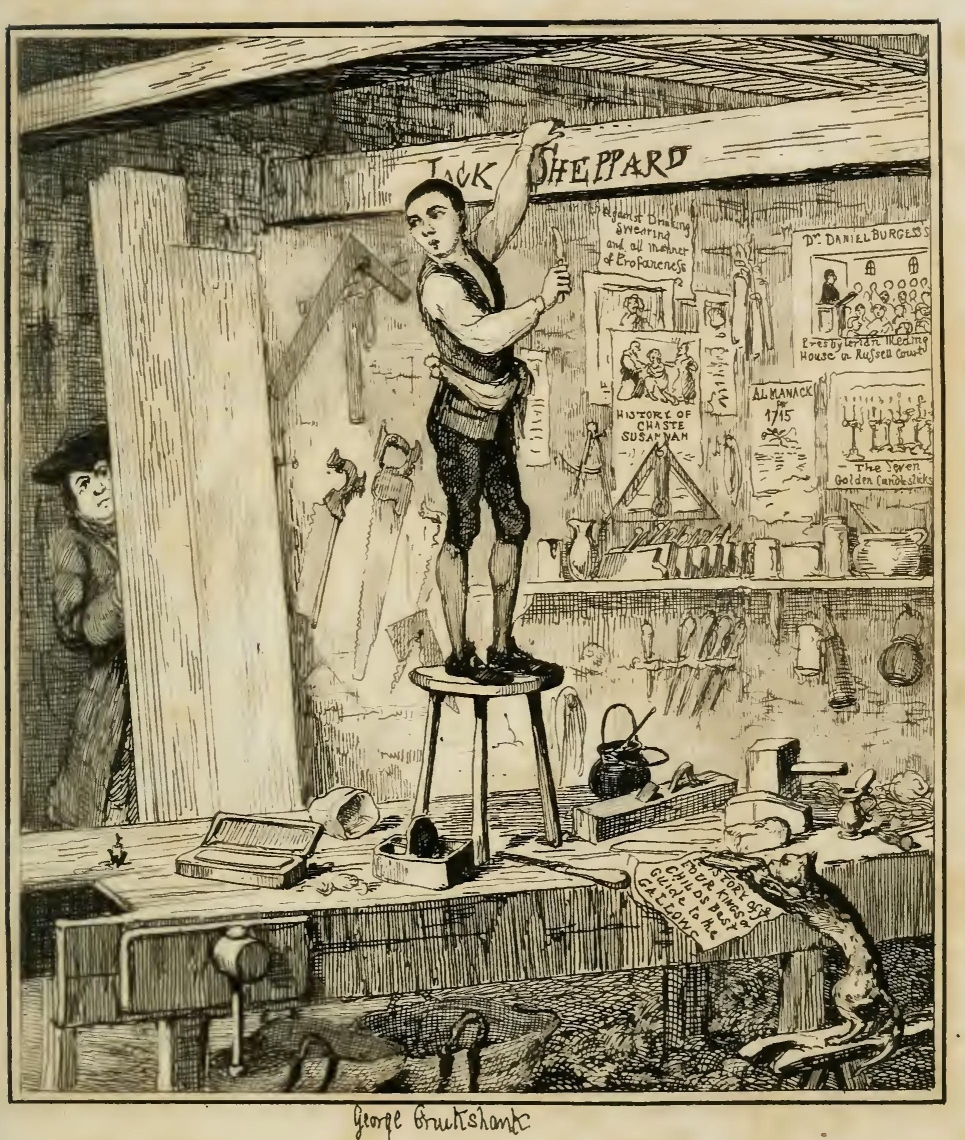 JACK SHEPPARD
Against Drinking
Swearing
and all manner
of Profaneness
Dr. DANIEL BURGESS'S
Presbyterian Meeting
House in Russell Court
HISTORY OF
CHASTE
SUSANNAH
ALMANACK
for
1715
The Seven
Golden Candlesticks
HISTORY of ye
FOUR KINGS
CHILDS best
Guide to the
GALLOWS
George Cruikshank